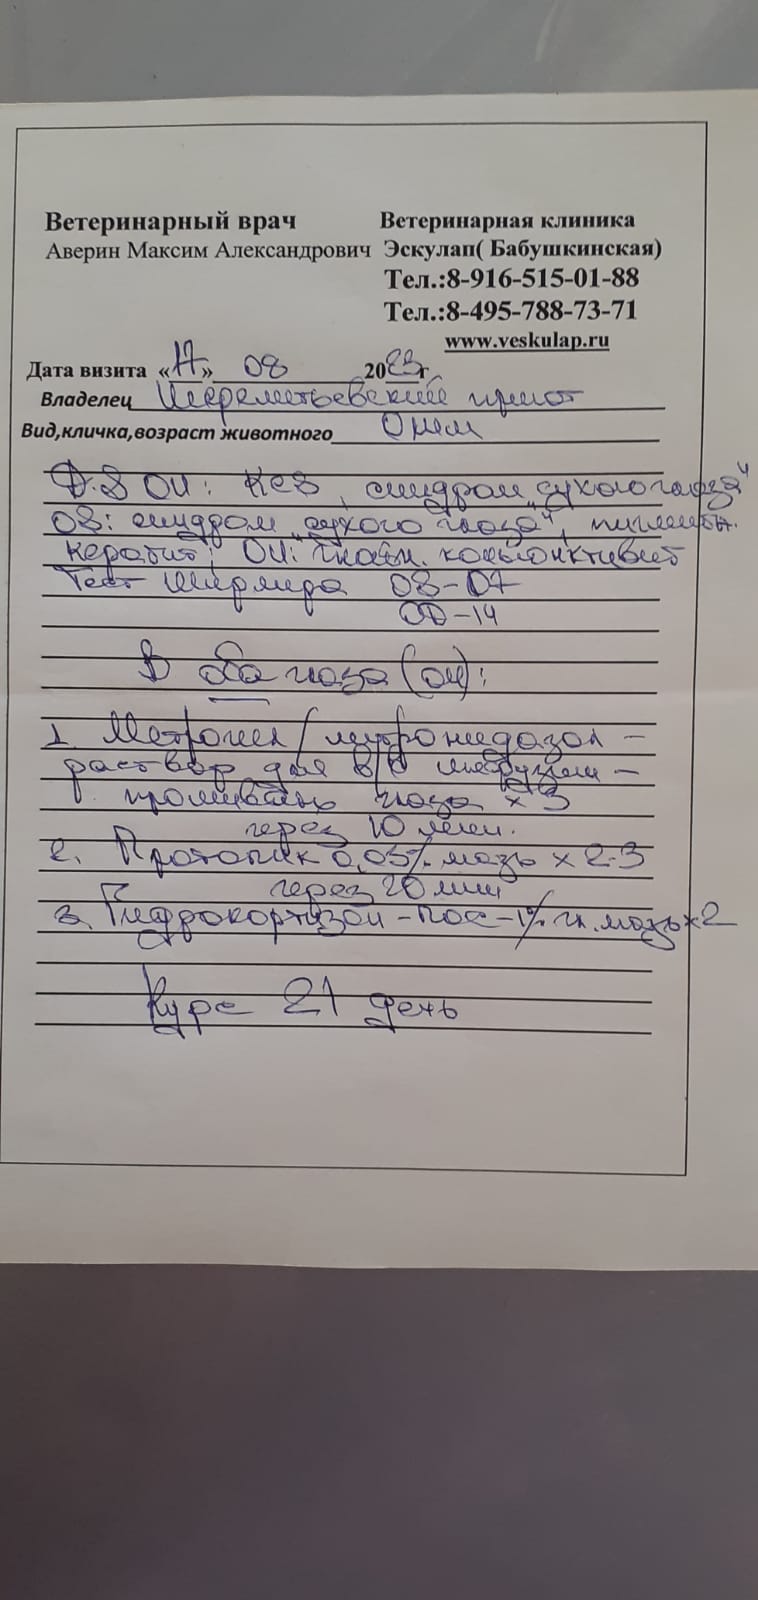 Ветеринарный врач Ветеринарная клиника
Аверин Максим Александрович Эскулап( Бабушкинская)
Тел.:8-916-515-01-88
Тел.:8-495-788-73-71
www.veskulap.ru
Дата визита «17» 08 2023г
Владелец Шереметьевский приют
Вид,кличка,возраст животного
D.S OU: KCS, синдром "сухого глаза"
OS: синдром "сухого глаза", пигментн.
кератит; OU: гнойн. конъюнктивит
Тест Ширмера OS-07
OD-14
В оба глаза (OU):
1. Метрогил/метронидазол -
раствор для в/в инфузии -
промывать глаза x 3
через 10 мин.
2. Протопик 0,03% мазь x 2-3
через 20 мин
3. Гидрокортизон-Пос-1% гл. мазь x 2
Курс 21 день